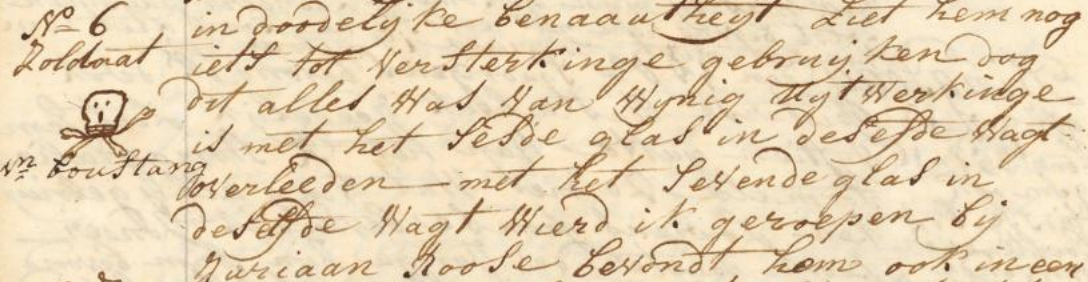 No 6
Zoldaat
vn boustang
in doodelijke benaautheijt Liet hem nog
iets tot Versterkinge gebruijken dog
dit alles Was Van Wijnig Uijt Werkinge
is met het sesde glas in deselfde Wagt
overleeden met het Sevende glas in
deselfde Wagt Wierd ik geroepen bij
Juriaan Roose bevondt hem ook in een